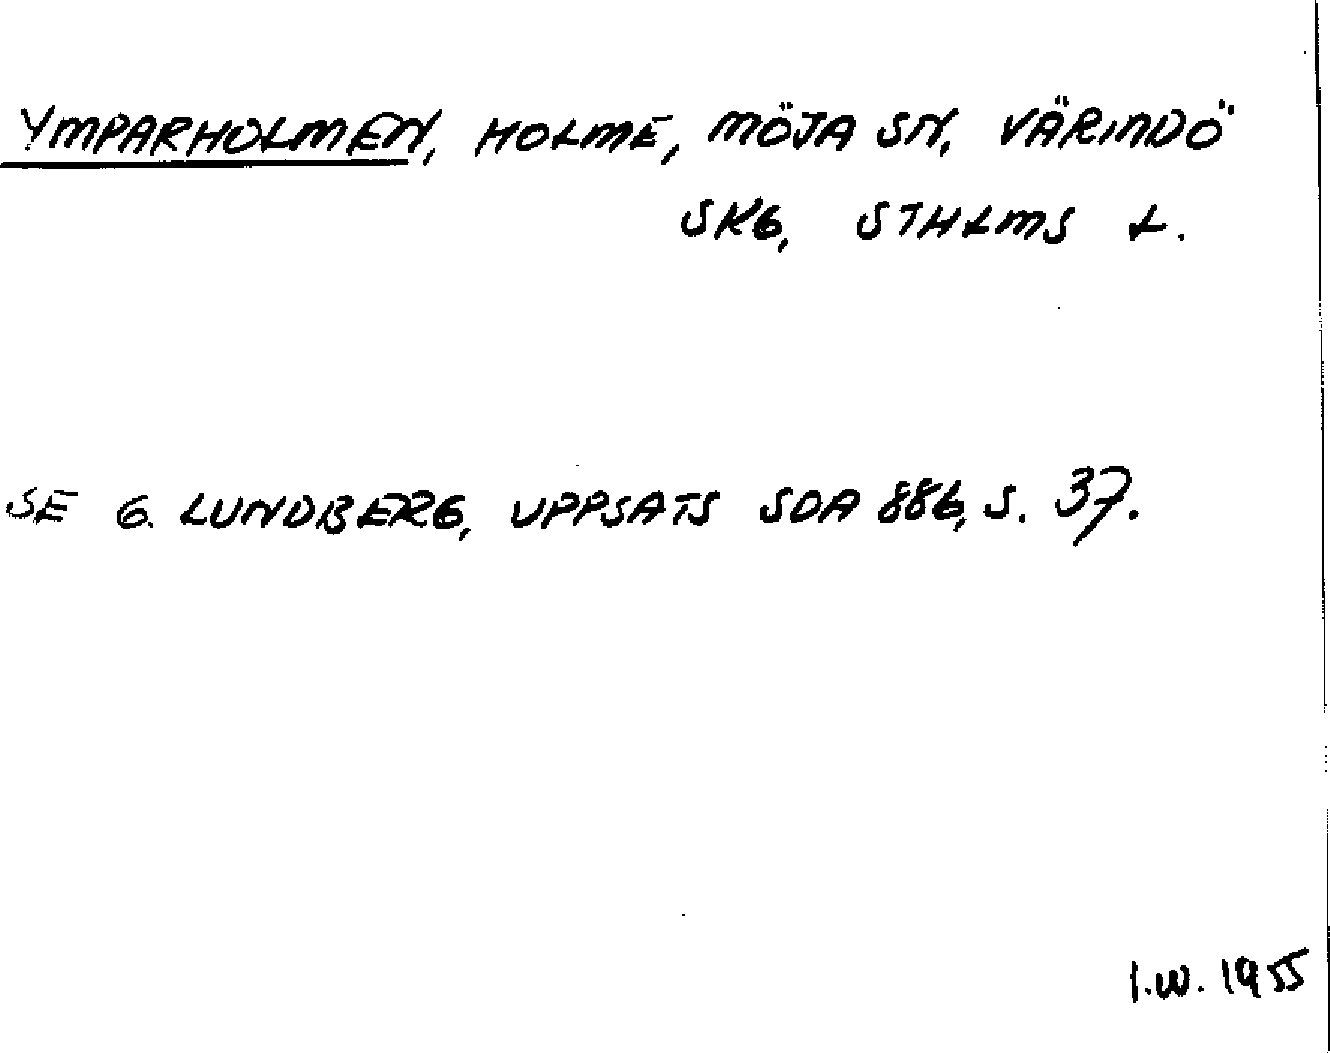 YMPARHOLMEN, HOLME, MÖJA SN, VÄRMDÖ
SKG, STHLMS L.
SE G. LUNDBERG, UPPSATS SOA 886, S. 37.
I.W. 1955